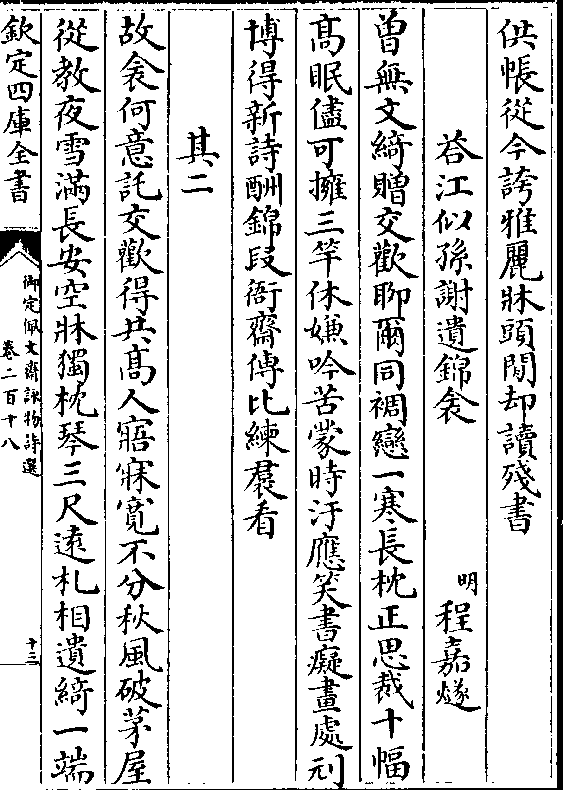 供帳從今誇雅麗牀頭閒却讀殘書
荅江似孫謝遺錦衾
明程嘉燧
曽無文綺贈交歡聊爾同裯戀一寒長枕正思裁十幅
髙眠儘可擁三竿休嫌吟苦蒙時汙應笑書癡畫處刓
博得新詩酬錦段衙齋傳比練裠看
其二
故衾何意託交歡得共髙人寤寐寛不分秋風破茅屋
從教夜雪滿長安空牀獨枕琴三尺逺札相遺綺一端
欽定四庫全書
御定佩文齋詠物詩選
卷二百十八
十三